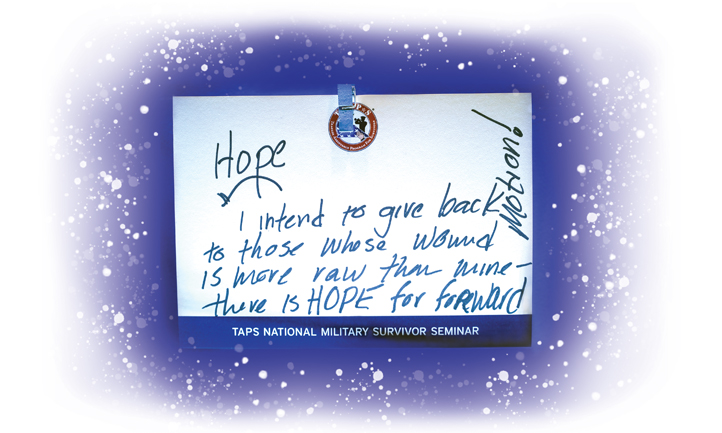 Hope
I intend to give back
to those whose wound
is more raw than mine -
there is HOPE for foreward
Motion!
TAPS NATIONAL MILITARY SURVIVOR SEMINAR